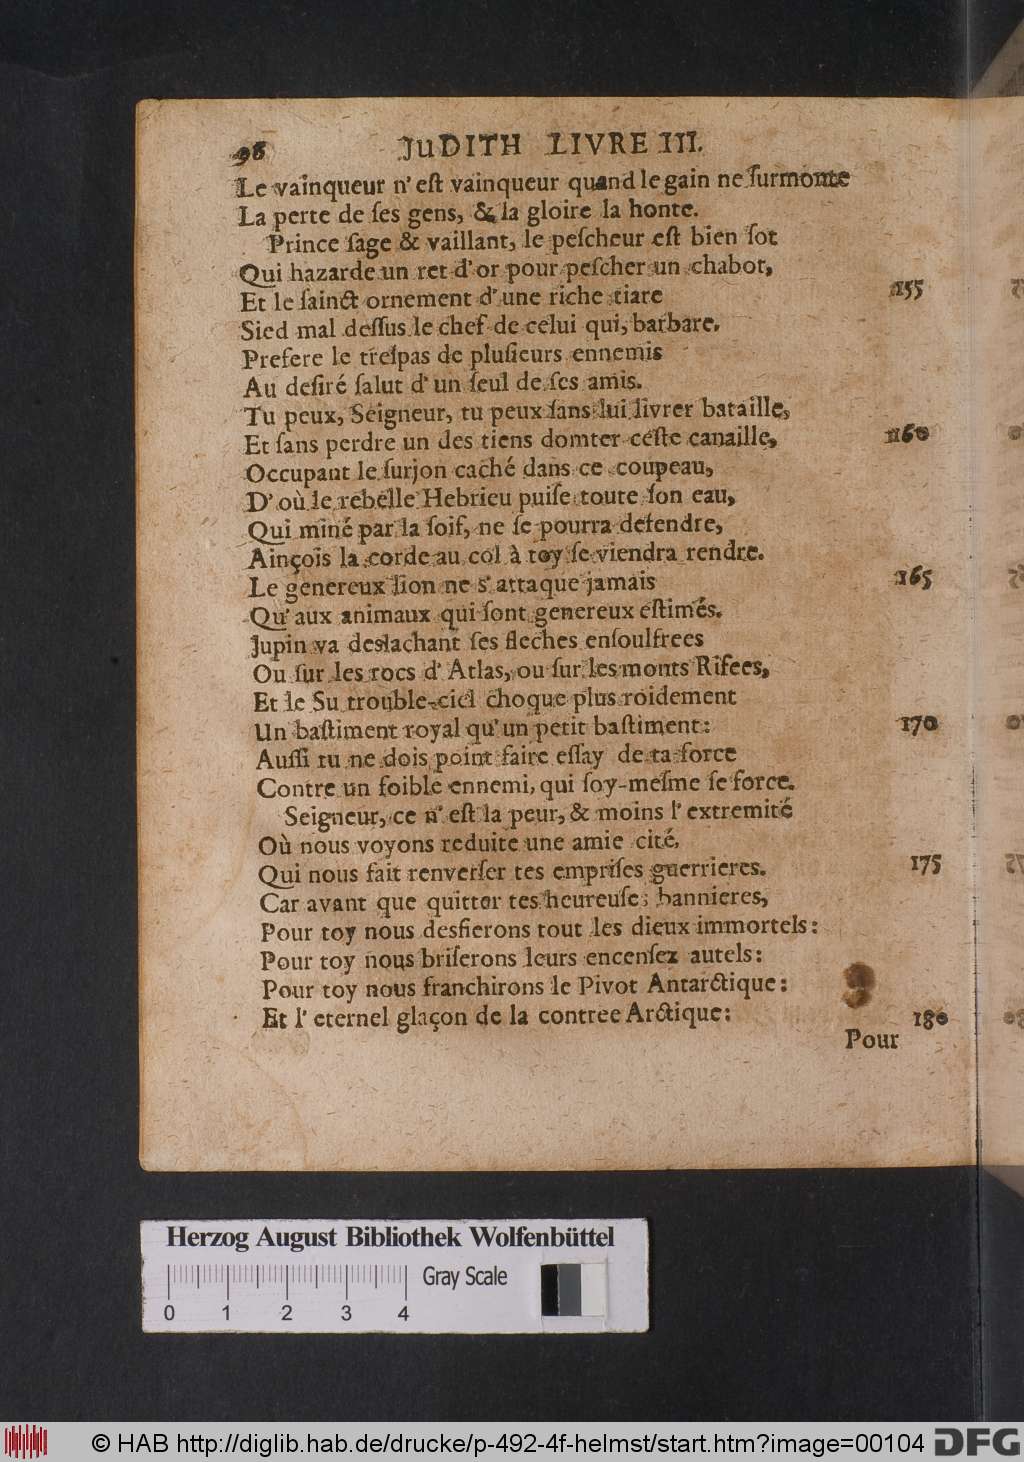 96 JuDITH LIVRE III.
Le vainqueur n'eſt vainqueur quand le gain ne ſurmonte
La perte de ſes gens, & la gloire la honte.
Prince ſage & vaillant, le peſcheur eſt bien ſot
Qui hazarde un ret d'or pour peſcher un chabot,
Et le ſainct ornement d'une riche tiare 155
Sied mal deſſus le chef de celui qui, barbare.
Prefere le treſpas de pluſieurs ennemis
Au deſiré ſalut d'un ſeul de ſes amis.
Tu peux, Seigneur, tu peux ſans lui livrer bataille,
Et ſans perdre un des tiens domter ceſte canaille, 160
Occupant le ſurjon caché dans ce coupeau,
D'où le rebelle Hebrieu puiſe toute ſon eau,
Qui miné par la ſoif, ne ſe pourra defendre,
Ainçois la corde au col à toy ſe viendra rendre.
Le genereux lion ne s'attaque jamais 165
Qu'aux animaux qui ſont genereux eſtimés.
Jupin va deslachant ſes fleches enſoulfrees
Ou ſur les rocs d'Atlas, ou ſur les monts Rifees,
Et le Su trouble-ciel choque plus roidement
Un baſtiment royal qu'un petit baſtiment: 170
Auſſi tu ne dois point faire eſſay de ta force
Contre un foible ennemi, qui ſoy-meſme ſe force.
Seigneur, ce n'eſt la peur, & moins l'extremité
Où nous voyons reduite une amie cité,
Qui nous fait renverſer tes empriſes guerrieres. 175
Car avant que quitter tes heureuſes bannieres,
Pour toy nous desfierons tout les dieux immortels:
Pour toy nous briſerons leurs encenſez autels:
Pour toy nous franchirons le Pivot Antarctique:
Et l'eternel glaçon de la contree Arctique: 180
Pour
Herzog August Bibliothek Wolfenbüttel
Gray Scale
0 1 2 3 4
© HAB http://diglib.hab.de/drucke/p-492-4f-helmst/start.htm?image=00104 DFG